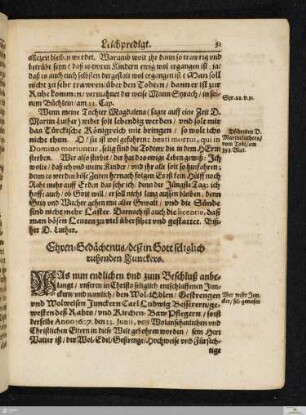 Leichpredigt. 31
allezeit bleiben werdet. Warumb wolt ihr dann so trawrig und
betrübt seyn / daß es ewren Kindern ewig wol ergangen ist : ja /
daß es auch euch selbsten der gestalt wol ergangen ist? Man soll
nicht zu sehr trawren uber den Todten / dann er ist zur
Ruhe kommen / vermahnet der weise Mann Syrach / in sei-
nem Büchlein / am 22. Cap.
Syr. 22. v. 11.
Wenn meine Tochter Magdalena / sagte auff eine Zeit D.
Martin Luther / wider solt lebendig werden / und solt mir
das Türckische Königreich mit bringen / so wolt ichs
nicht thun. O / sie ist wol gefahren: beati mortui, qui in
Domino moriuntur, selig sind die Todten die in dem HErrn
sterben. Wer also stirbet / der hat das ewige Leben gewiß. Ich
wolte / daß ich und meine Kinder / und ihr alle solt so hinfahren;
denn es werden böse Zeiten hernach folgen. Es ist kein Hülff noch
Raht mehr auff Erden das sehe ich / denn der Jüngste Tag: ich
hoff auch / ob Gott will / er soll nicht lang aussen bleiben / dann
Geitz und Wucher gehen mit aller Gewalt / und die Sünde
sind nicht mehr Laster. Darnach ist auch die securitas, daß
man bösen Leuten zu viel ubersihet und gestattet. Biß-
her D. Luther.
Tischreden D.
Martini Lutheri,
vom Todt / am
393. Blat.
Ehren-Gedächtnis / deß in Gott seliglich
ruhenden Junckers.
WAs nun endlichen und zum Beschluß anbe-
langt / unseren in Christo seliglich entschlaffenen Jun-
ckern und namlich / den Wol-Edlen / Gestrengen
und Wolweisen Junckern Carl Ludwig Belserern / ge-
westen deß Rahts / und Kirchen-Baw Pflegern / so ist
derselbe Anno 1607. den 13. Junii, von Wolansehnlichen und
Christlichen Eltern in diese Welt gebohren worden / sein Herr
Vatter ist / der Wol-Edel / Gestrenge / Hochweise und Fürsich-
tige
Wer unser Jun-
cker / sel. gewesen